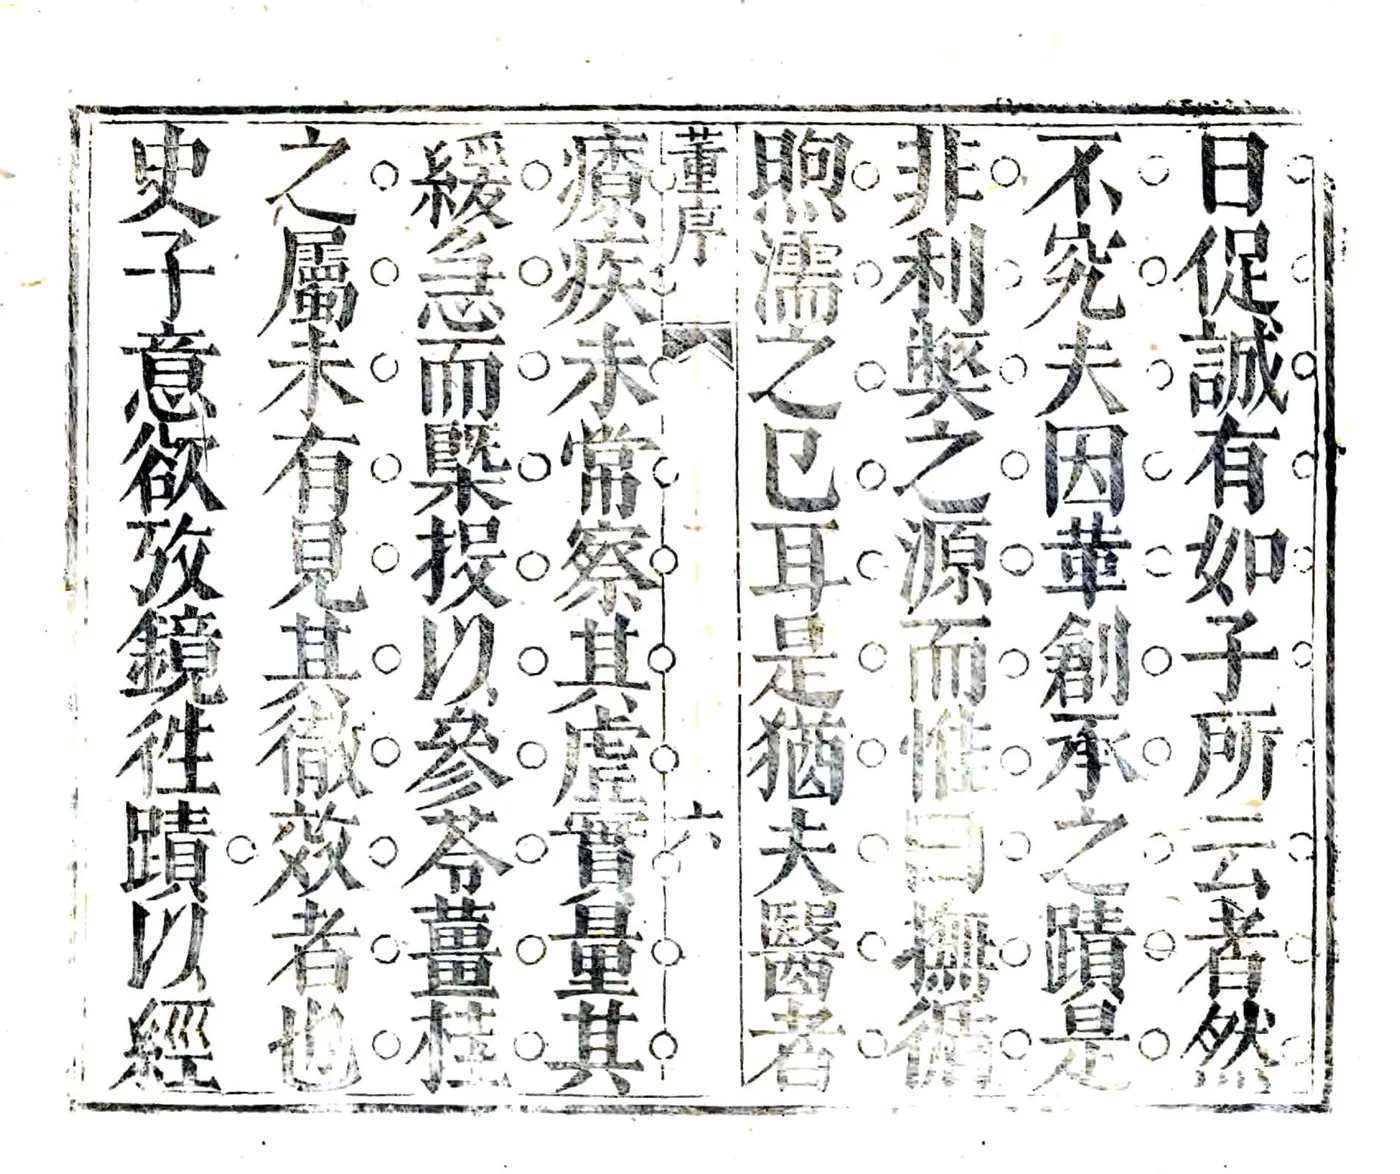 日促誠有如子所云者然
不究夫因革創承之蹟是
非利獘之源而惟曰撫循
煦濡之已耳是猶夫醫者
董序
六
療疾未常察其虛實量其
緩急而槩投以參苓薑桂
之屬未有見其徹效者也
史子意欲攷鏡徃蹟以經